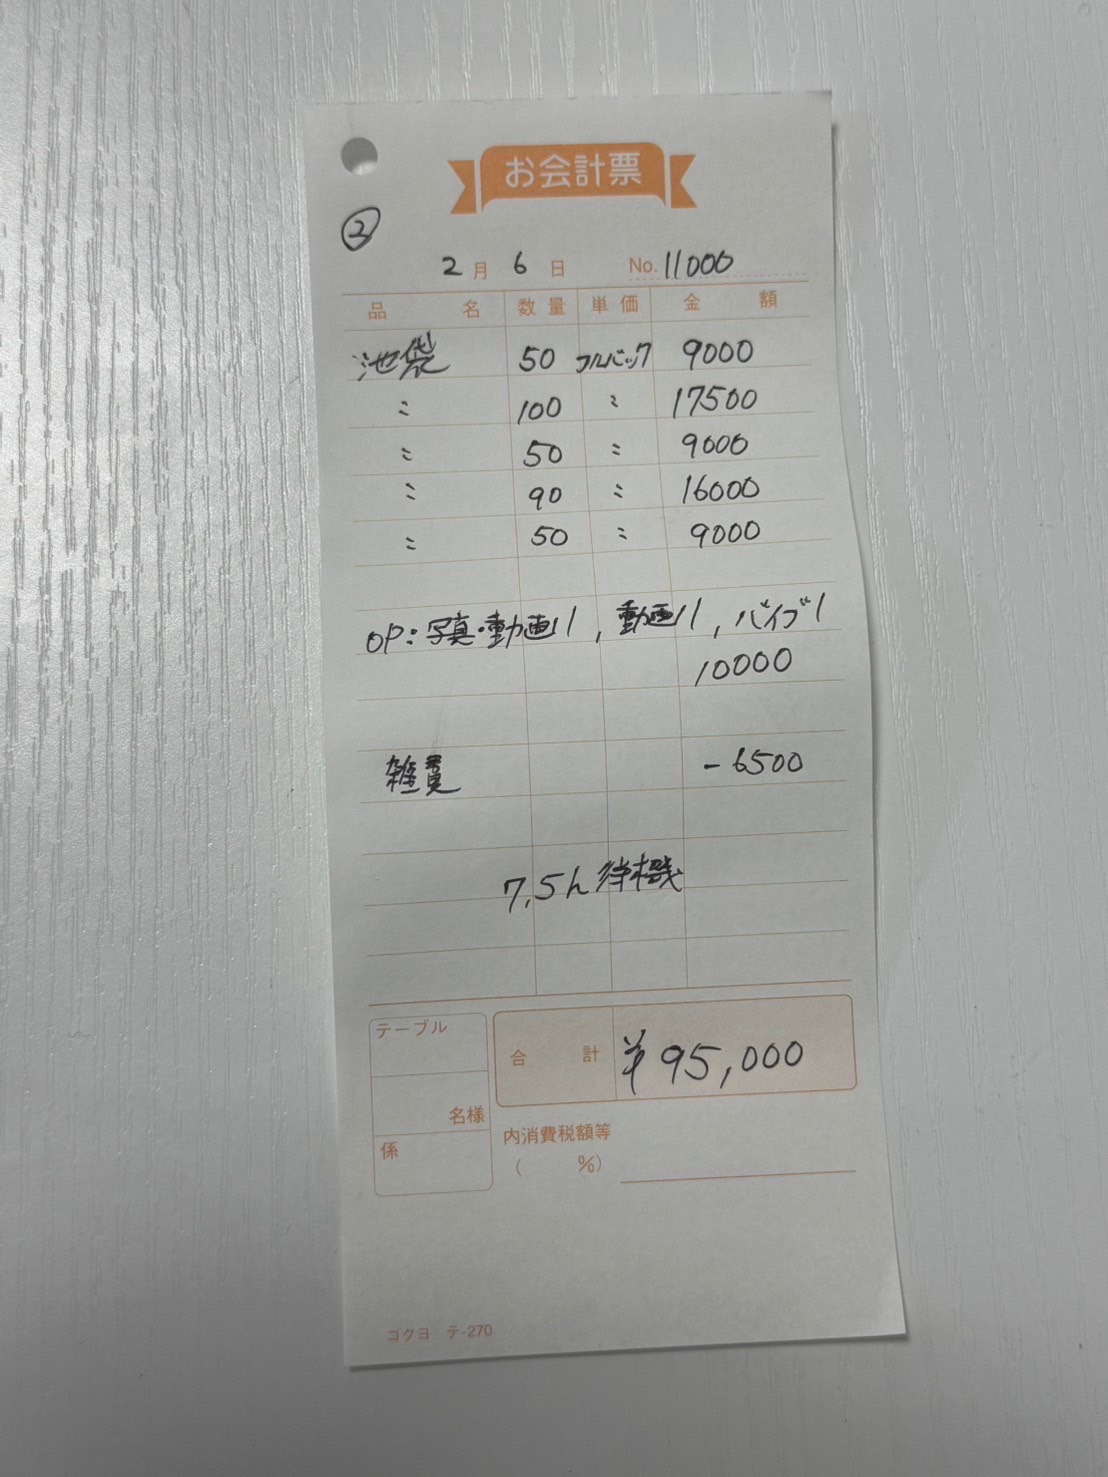 お会計票
②
2月 6日 No.11000
品名 数量 単価 金額
池袋 50 フルバック 9000
〃 100 〃 17500
〃 50 〃 9000
〃 90 〃 16000
〃 50 〃 9000
OP:写真・動画1, 動画1, バイブ1
10000
雑費 -6500
7.5h 待機
テーブル
名様
係
合計 ¥95,000
内消費税額等
( %)
コクヨ テ-270